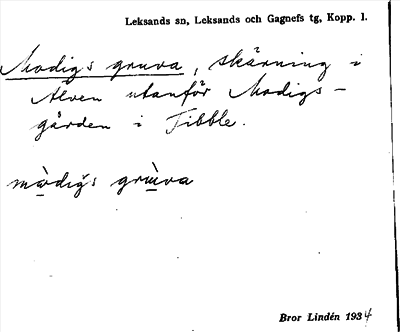 Leksands sn, Leksands och Gagnefs tg, Kopp. l.
Modigs gruva, skärning i
Älven utanför Modigs-
gården i Tibble.
mòdig̀s grùva
Bror Lindén 1934